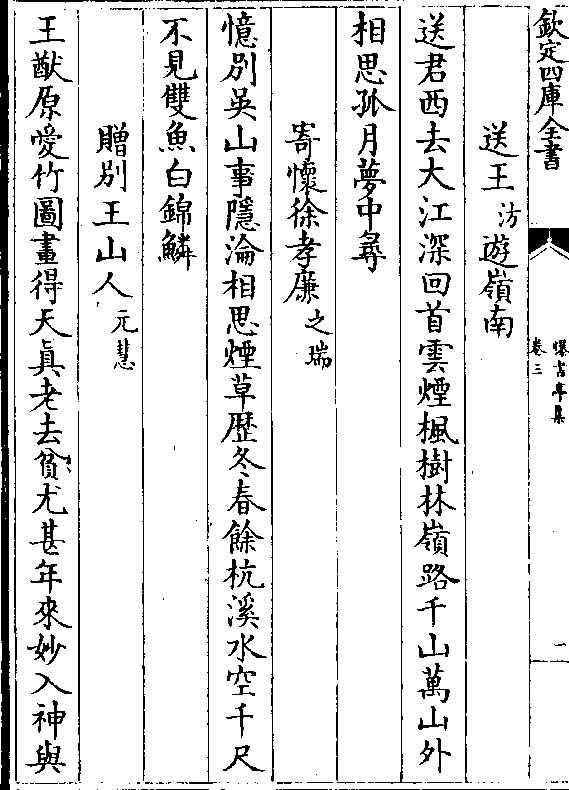 欽定四庫全書
曝書亭集
卷三
一
送王沩遊嶺南
送君西去大江深回首雲煙楓樹林嶺路千山萬山外
相思孤月夢中尋
寄懷徐孝廉之瑞
憶别吳山事隱淪相思煙草歴冬春餘杭溪水空千尺
不見雙魚白錦鱗
贈別王山人元慧
王猷原愛竹圖畫得天真老去貧尤甚年來妙入神與